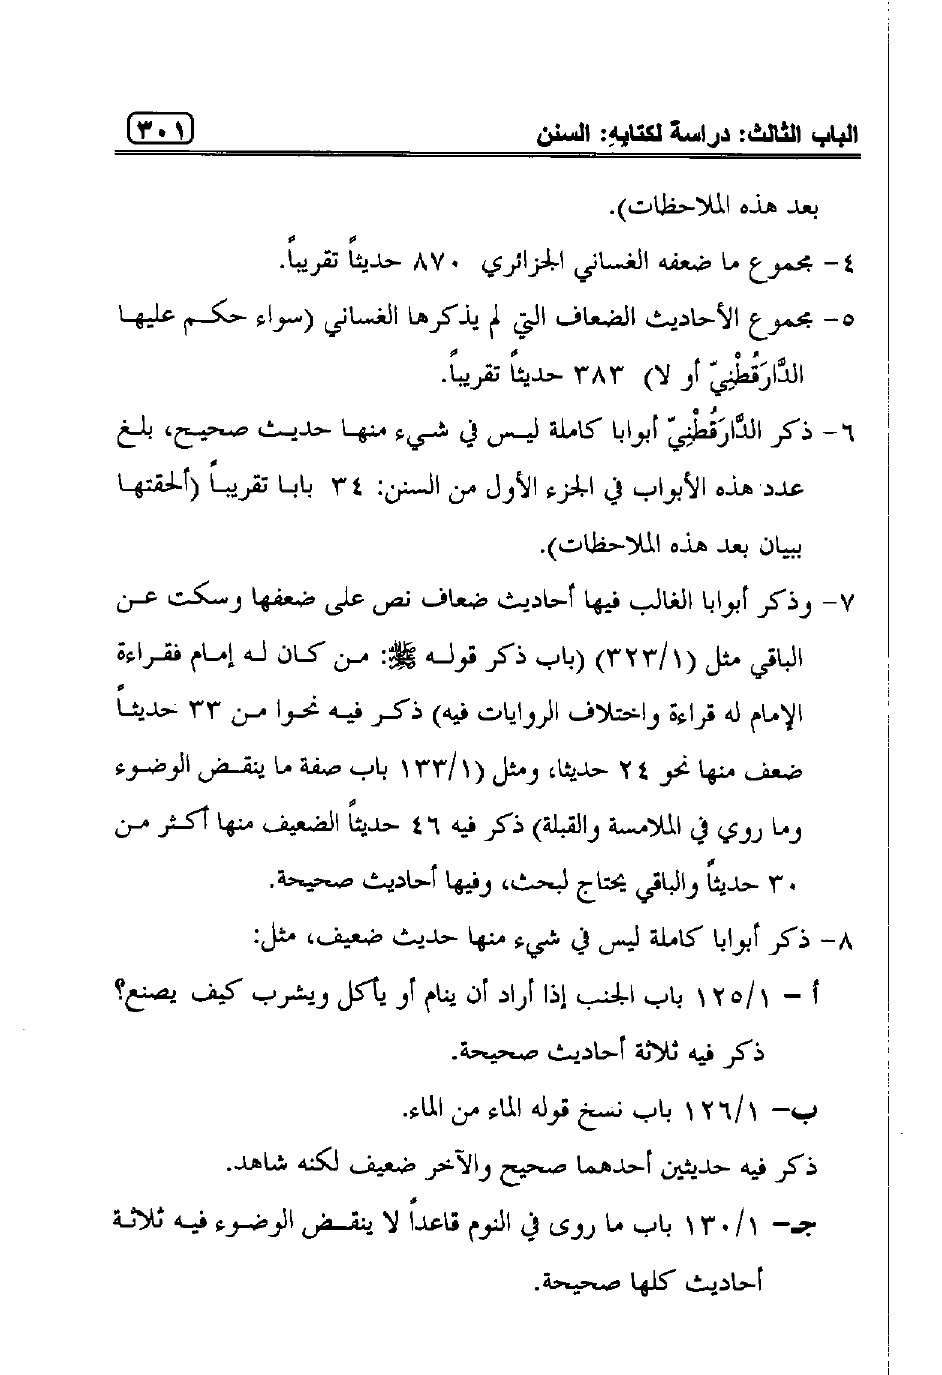 الباب الثالث: دراسة لكتابهِ: السنن
٣٠١
بعد هذه الملاحظات).
٤- مجموع ما ضعفه الغساني الجزائري ٨٧٠ حديثاً تقريباً.
٥- مجموع الأحاديث الضعاف التي لم يذكرها الغساني (سواء حكم عليها
الدَّارَقُطْنِيّ أو لا) ٣٨٣ حديثاً تقريباً.
٦- ذكر الدَّارَقُطْنِيّ أبوابا كاملة ليس في شيء منها حديث صحيح، بلغ
عدد هذه الأبواب في الجزء الأول من السنن: ٣٤ بابا تقريباً (ألحقتها
ببيان بعد هذه الملاحظات).
٧- وذكر أبوابا الغالب فيها أحاديث ضعاف نص على ضعفها وسكت عن
الباقي مثل (٣٢٣/١) (باب ذكر قوله ﷺ: من كان له إمام فقراءة
الإمام له قراءة واختلاف الروايات فيه) ذكر فيه نحوا من ٣٣ حديثاً
ضعف منها نحو ٢٤ حديثا، ومثل (١٣٣/١ باب صفة ما ينقض الوضوء
وما روي في الملامسة والقبلة) ذكر فيه ٤٦ حديثاً الضعيف منها أكثر من
٣٠ حديثاً والباقي يحتاج لبحث، وفيها أحاديث صحيحة.
٨- ذكر أبوابا كاملة ليس في شيء منها حديث ضعيف، مثل:
أ - ١٢٥/١ باب الجنب إذا أراد أن ينام أو يأكل ويشرب كيف يصنع؟
ذكر فيه ثلاثة أحاديث صحيحة.
ب- ١٢٦/١ باب نسخ قوله الماء من الماء.
ذكر فيه حديثين أحدهما صحيح والآخر ضعيف لكنه شاهد.
جـ- ١٣٠/١ باب ما روى في النوم قاعداً لا ينقض الوضوء فيه ثلاثة
أحاديث كلها صحيحة.